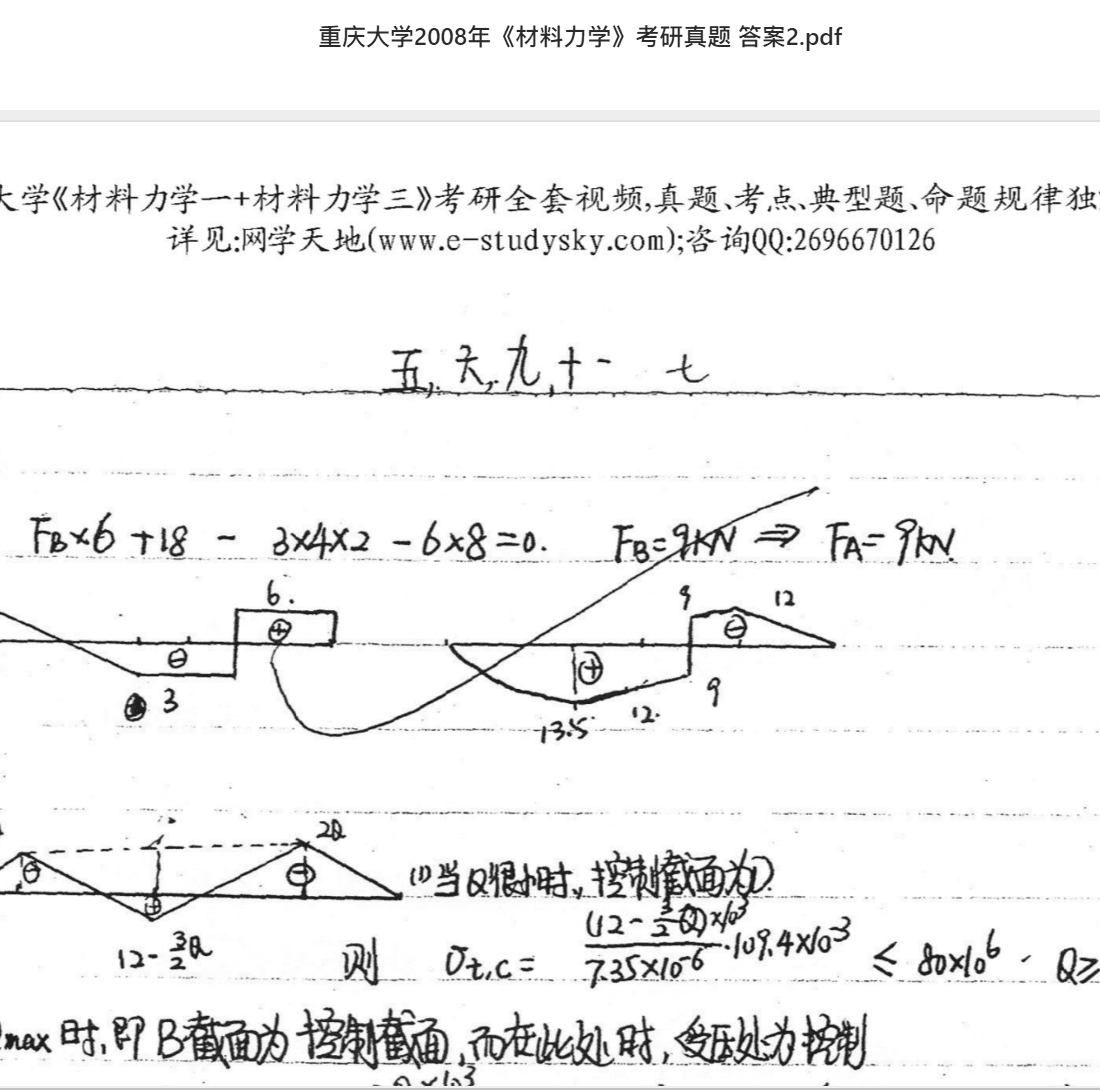 重庆大学2008年《材料力学》考研真题 答案2.pdf
大学《材料力学一+材料力学三》考研全套视频,真题、考点、典型题、命题规律独
详见:网学天地(www.e-studysky.com);咨询QQ:2696670126
五,六,九,十一 七
F_B×6+18 - 3×4×2 - 6×8=0. F_B=9kN ⇒ F_A=9kN.
6. 9 12
⊕ ⊖
⊖ ⊕
3 13.5 12. 9
2Q
⊖ ⊕ ⊖ (1)当Q很小时,控制截面为D
12-3/2Q 则 σt,c= (12-3/2Q)×10³/7.35×10⁻⁶·109.4×10⁻³ ≤ 80×10⁶. Q≥
max时,即B截面为控制截面,而在此处时,受压处为控制